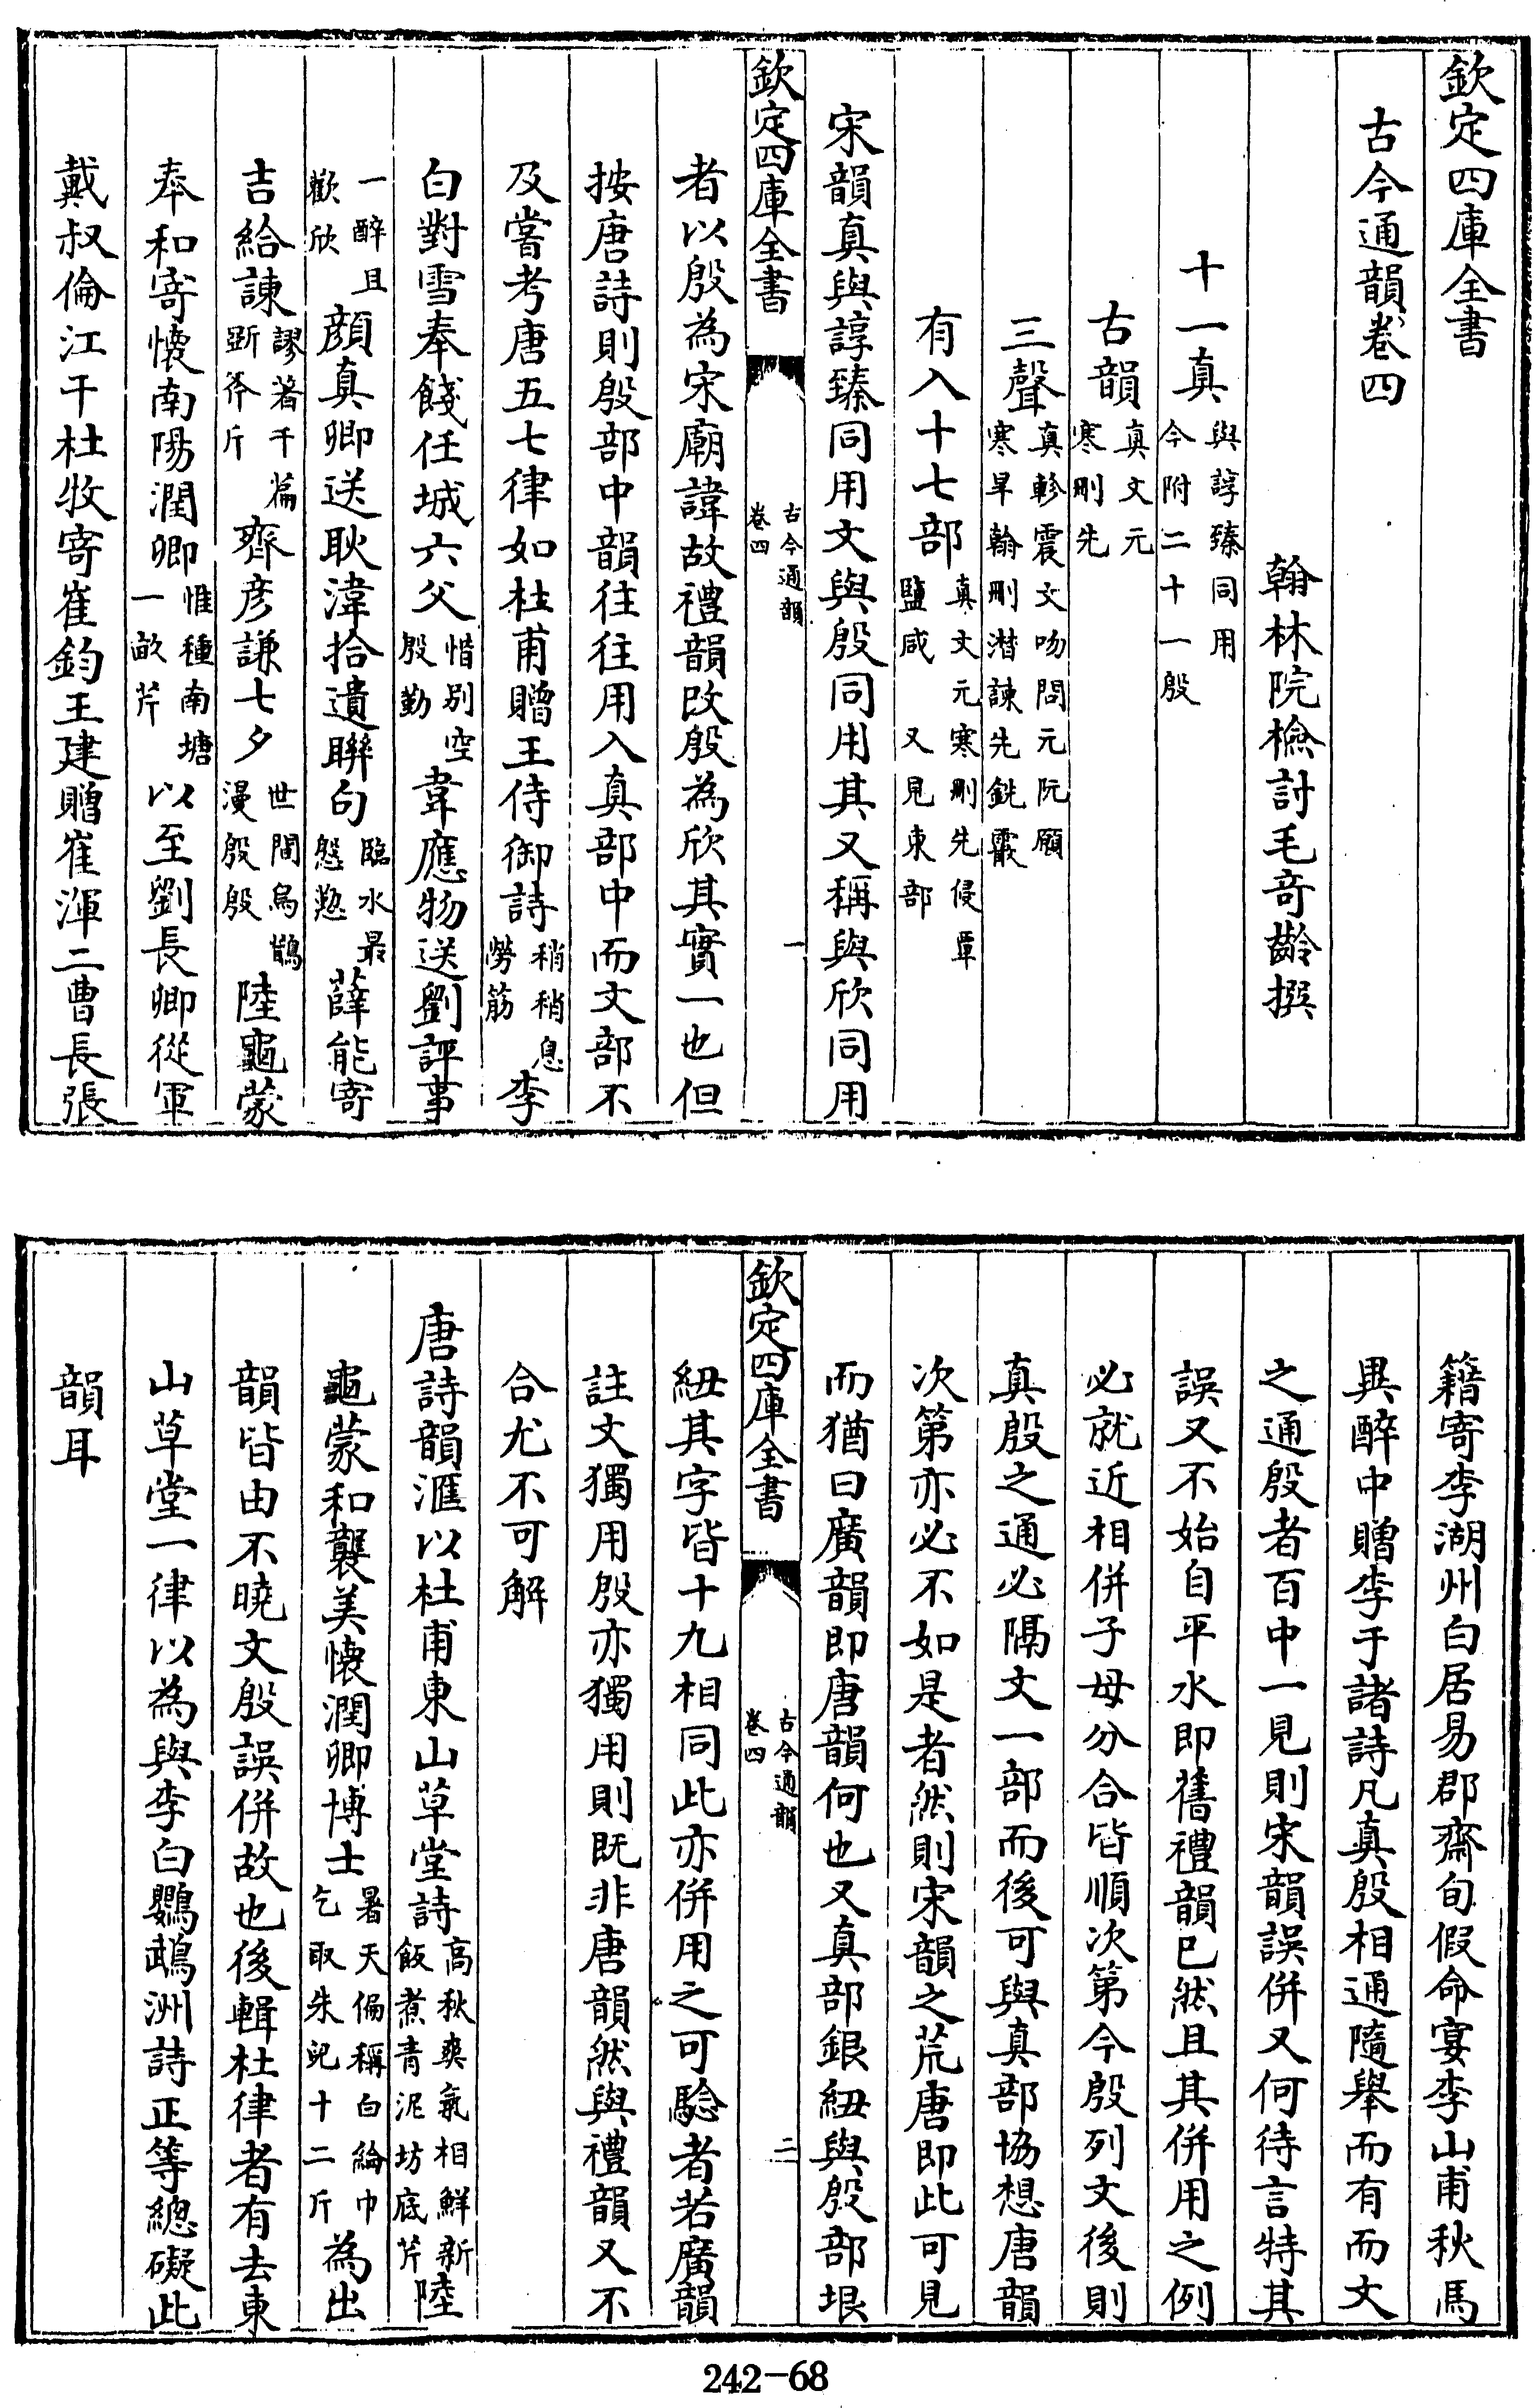 欽定四庫全書
古今通韻卷四
翰林院檢討毛奇齡撰
十一真與諄臻同用今附二十一殷
古韻真文元寒刪先
三聲真軫震文吻問元阮願寒旱翰刪潸諫先銑霰
有入十七部真文元寒刪先侵覃鹽咸 又見東部
宋韻真與諄臻同用文與殷同用其又稱與欣同用
欽定四庫全書 古今通韻卷四 一
者以殷為宋廟諱故禮韻改殷為欣其實一也但
按唐詩則殷部中韻往往用入真部中而文部不
及嘗考唐五七律如杜甫贈王侍御詩稍稍息勞筋李
白對雪奉餞任城六父惜別空殷勤韋應物送劉評事
一醉且歡欣顔真卿送耿湋拾遺聯句臨水最慇懃薛能寄
吉給諫謬著千篇斵斧斤齊彥謙七夕世間烏鵲漫殷殷陸龜蒙
奉和寄懷南陽潤卿惟種南塘一畝芹以至劉長卿從軍
戴叔倫江干杜牧寄崔鈞王建贈崔渾二曹長張
籍寄李湖州白居易郡齋旬假命宴李山甫秋馬
異醉中贈李于諸詩凡真殷相通隨舉而有而文
之通殷者百中一見則宋韻誤併又何待言特其
誤又不始自平水即舊禮韻已然且其併用之例
必就近相併子母分合皆順次第今殷列文後則
真殷之通必隔文一部而後可與真部協想唐韻
次第亦必不如是者然則宋韻之荒唐即此可見
而猶曰廣韻即唐韻何也又真部銀紐與殷部垠
欽定四庫全書 古今通韻卷四 二
紐其字皆十九相同此亦併用之可驗者若廣韻
註文獨用殷亦獨用則既非唐韻然與禮韻又不
合尤不可解
唐詩韻滙以杜甫東山草堂詩高秋爽氣相鮮新飯煮青泥坊底芹陸
龜蒙和襲美懷潤卿博士暑天偏稱白綸巾乞取朱兒十二斤為出
韻皆由不曉文殷誤併故也後輯杜律者有去東
山草堂一律以為與李白鸚鵡洲詩正等總礙此
韻耳
242-68